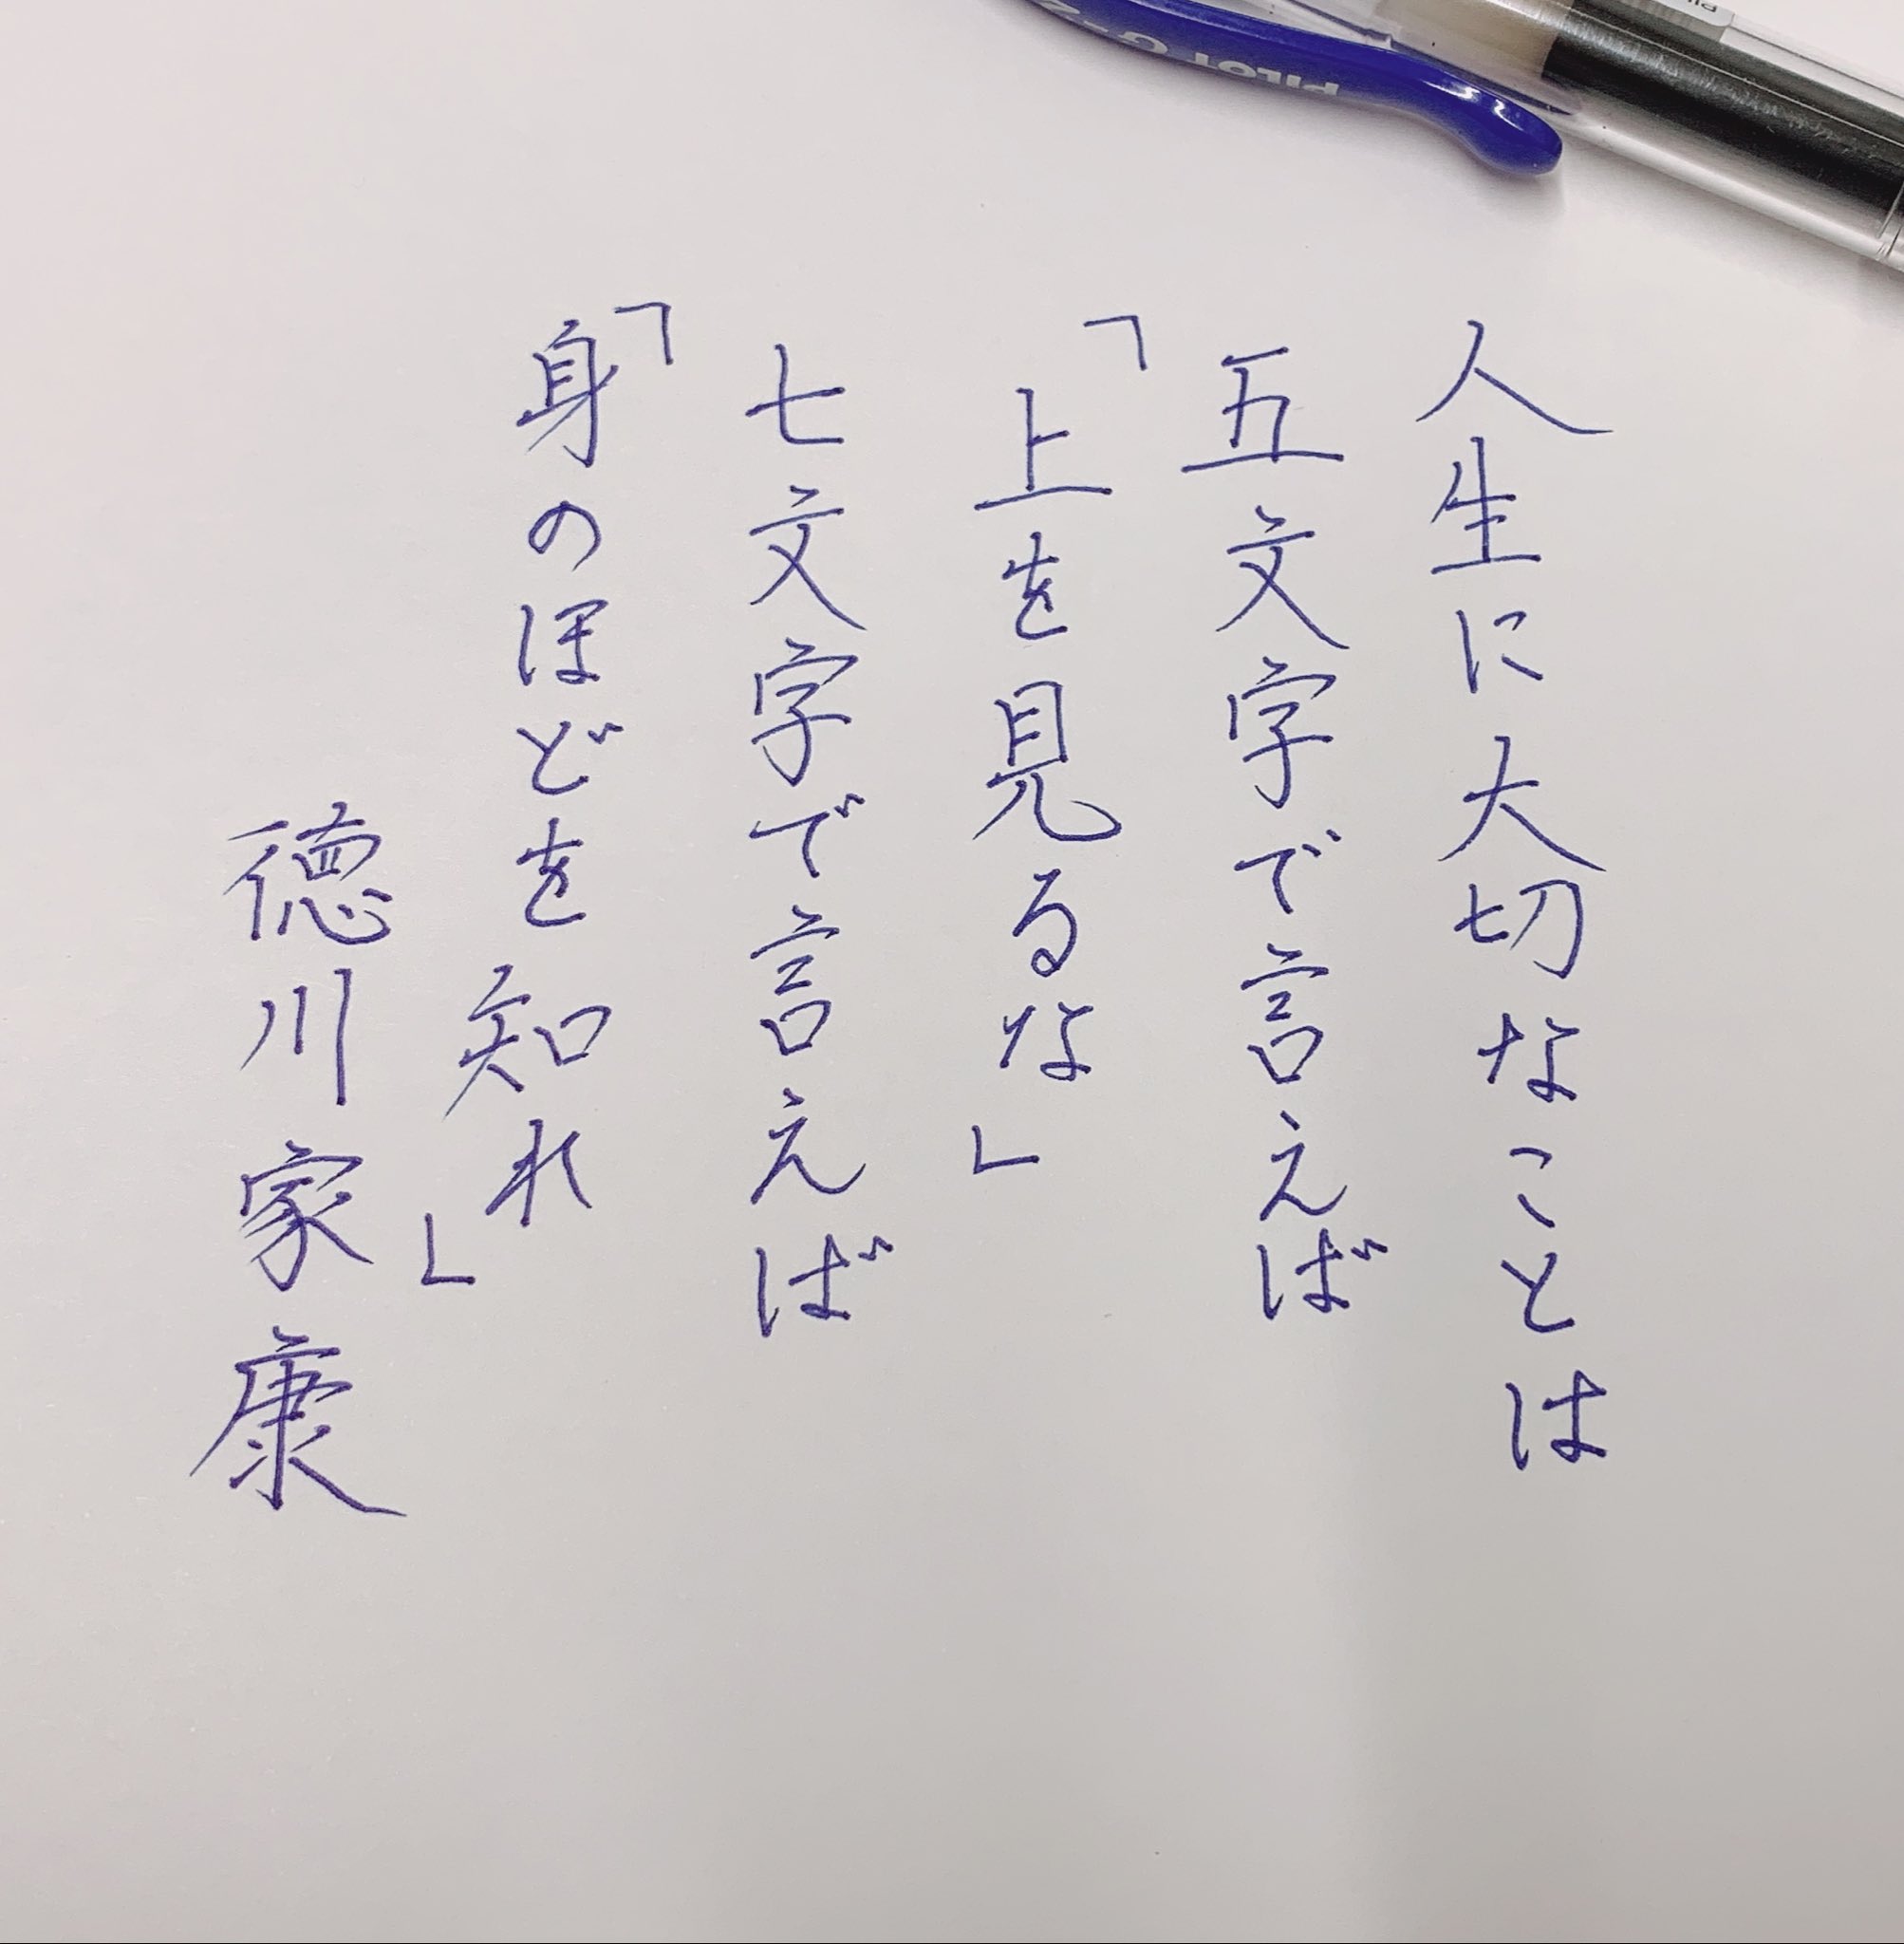 人生に大切なことは
五文字で言えば
「上を見るな」
七文字で言えば
「身のほどを知れ」
徳川家康
PILOT G-2